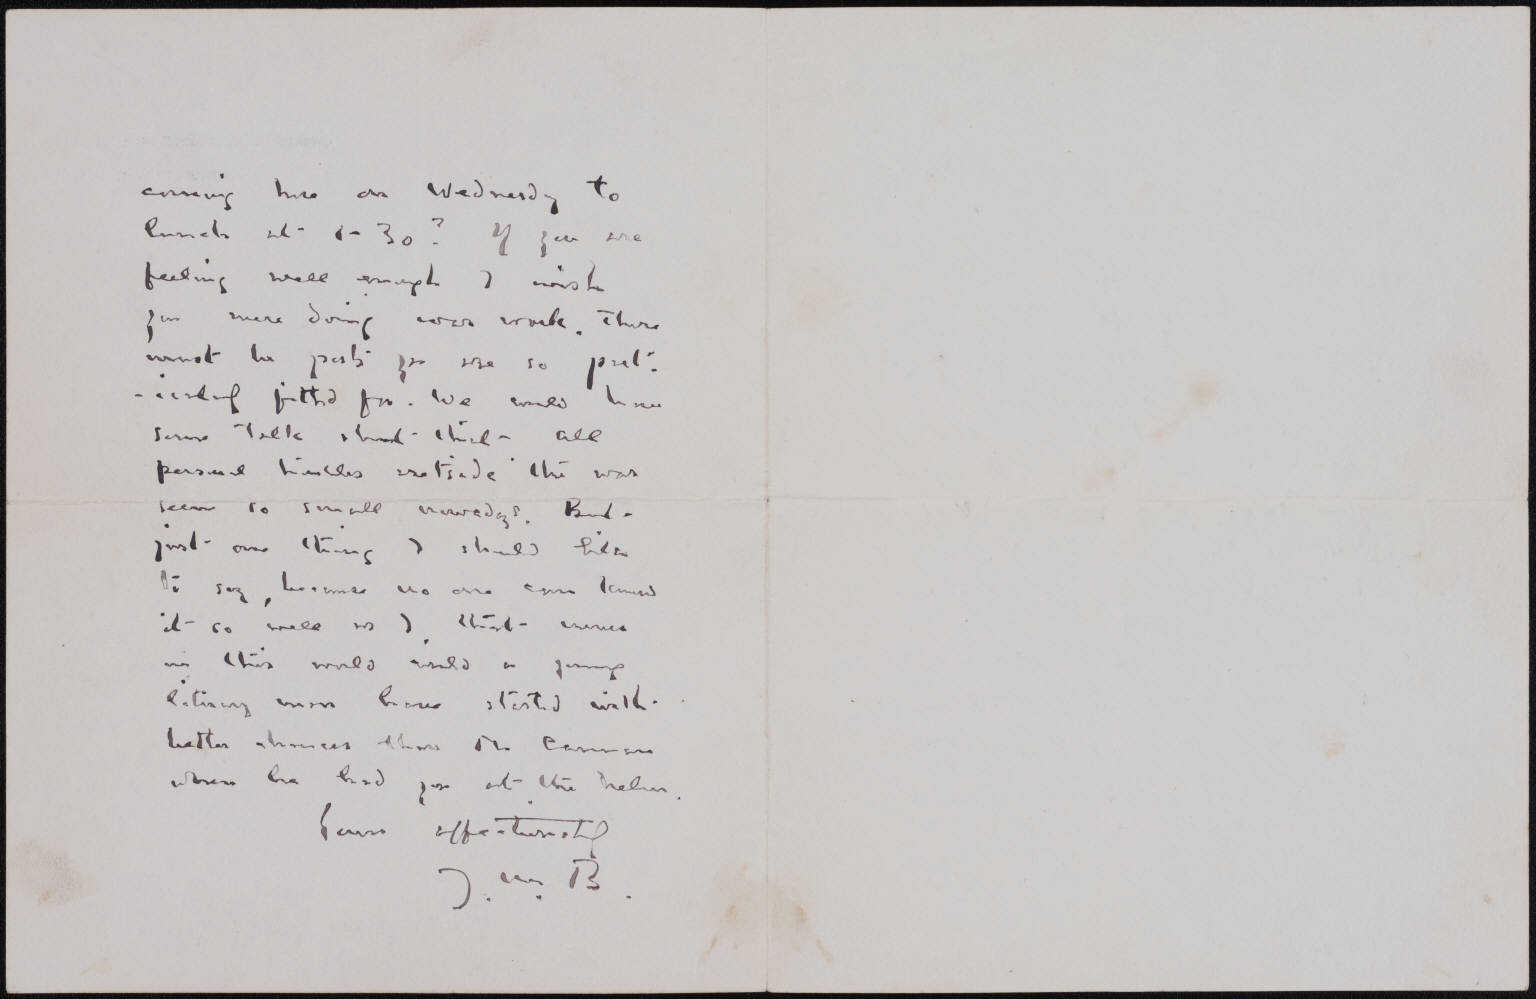 coming here on Wednesday to
lunch at 1-30? If you are
feeling well enough I wish
you were doing war work. There
must be posts you are so part-
-icularly fitted for. We could have
some talk about that - all
personal troubles outside the war
seem so small nowadays. But
just one thing I should like
to say, because no one can know
it so well as I, that never
in this world could a young
literary man have started with
better chances than the
when he had you at the helm.
Yours affectionately
J. M. B.